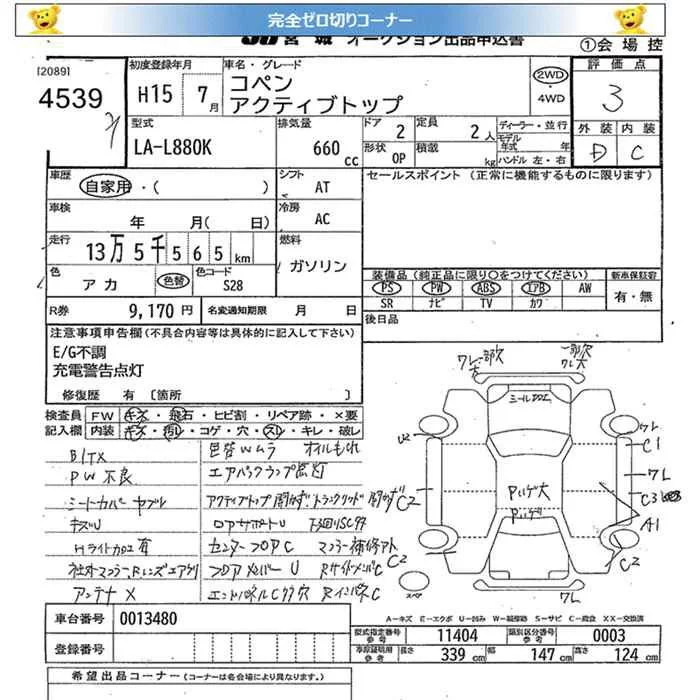 完全ゼロ切りコーナー
JU宮城 オークション出品申込書
①会場控
[2089]
4539
初度登録年月
H15 7月
車名・グレード
コペン
アクティブトップ
2WD
・4WD
評価点
3
外装 内装
D C
型式
LA-L880K
排気量
660 cc
ドア 2
形状 OP
定員 2人
積載 kg
ディーラー・並行
モデル年式 年
ハンドル 左・右
車歴
自家用・( )
シフト
AT
車検
年 月( 日)
冷房
AC
走行
13万5千565km
燃料
ガソリン
色
アカ
色替
色コード
S28
R券 9,170円
名変通知期限 月 日
セールスポイント(正常に機能するものに限ります)
装備品(純正品に限り○をつけてください)
新車保証書
PS PW ABS エアB AW
SR ナビ TV カワ
有・無
後日品
注意事項申告欄(不具合内容等は具体的に記入して下さい)
E/G不調
充電警告点灯
修復歴 有 [箇所 ]
検査員記入欄
FW キズ・飛石・ヒビ割・リペア跡・×要
内装 キズ・汚レ・コゲ・穴・スレ・キレ・破レ
色替Wムラ オイルもれ
PW不良
エアバックランプ点灯
シートカバー ヤブレ
キズU
ロアサポートU 下廻りSC サ
Hライトカロエ有
センターフロアC マフラー補修アト
フロアメンバーU RサイドメンバC
アンテナX
エンドパネルCサ穴 RインパネC
ワレ一部欠
一部欠
ワレ大
ミールロエ
U2
ワレ
C1
ワレ
C2
Pハゲ大
Pハゲ
C3
A1
C2
C2
スペア
ワレ
A=キズ E=エクボ U=凹み W=補修跡 S=サビ C=腐食 XX=交換済
車台番号 0013480
登録番号
型式指定番号 参考 11404
類別区分番号 参考 0003
車庫証明用 参考 長さ 339cm 幅 147cm 高さ 124cm
希望出品コーナー(コーナーは各会場により異なります。)